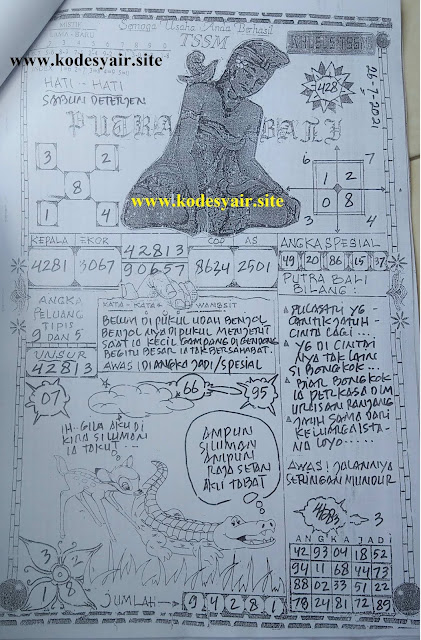 Semoga Usaha Anda Berhasil
TSSM
www.kodesyair.site
HATI - HATI
SABUN DETERJEN
428
26-7-2021
PUTRA BALI
3 2
8
1 4
6 7
1 2
0 8
3 4
www.kodesyair.site
KEPALA EKOR
42813
COP AS
ANGKA SPESIAL
4281 3067
90657
8634 2501
49 20 86 15 37
PUTRA BALI
BILANG :
ANGKA
PELUANG
TIPIS
9 DAN 5
UNSUR
42813
KATA - KATA WANGSIT
BELUM DI PUKUL UDAH BENJOL
BENJOL NYA DI PUKUL MENJERIT
SAAT IA KECIL GAMPANG DI GENDONG
BEGITU BESAR IA TAK BERSAHABAT.
AWAS! DIANGKA JADI/SPESIAL
CANTIK JATUH -
CINTA LAGI ...
YG DI CINTAI
NYA TAK LAIN
SI BONGKOK ...
BIAR BONGKOK
IA PERKASA DLM
URUSAN RANJANG
JATUH SAMA DARI
KELUARGA ISTA-
NA LOYO .....
AWAS! JALANNYA
SERINGAN MUNDUR
07
66
95
IH - GILA AKU DI
KIRA SILUMAN
IA TAKUT ...
AMPUN
SILUMAN
AMPUN
RAJA SETAN
AKU TOBAT
3
ANGKA JADI
42 93 04 18 52
94 11 68 44 73
88 02 33 51 22
78 24 81 72 89
3 2
1 8
JUMLAH
9 4 2 8 1